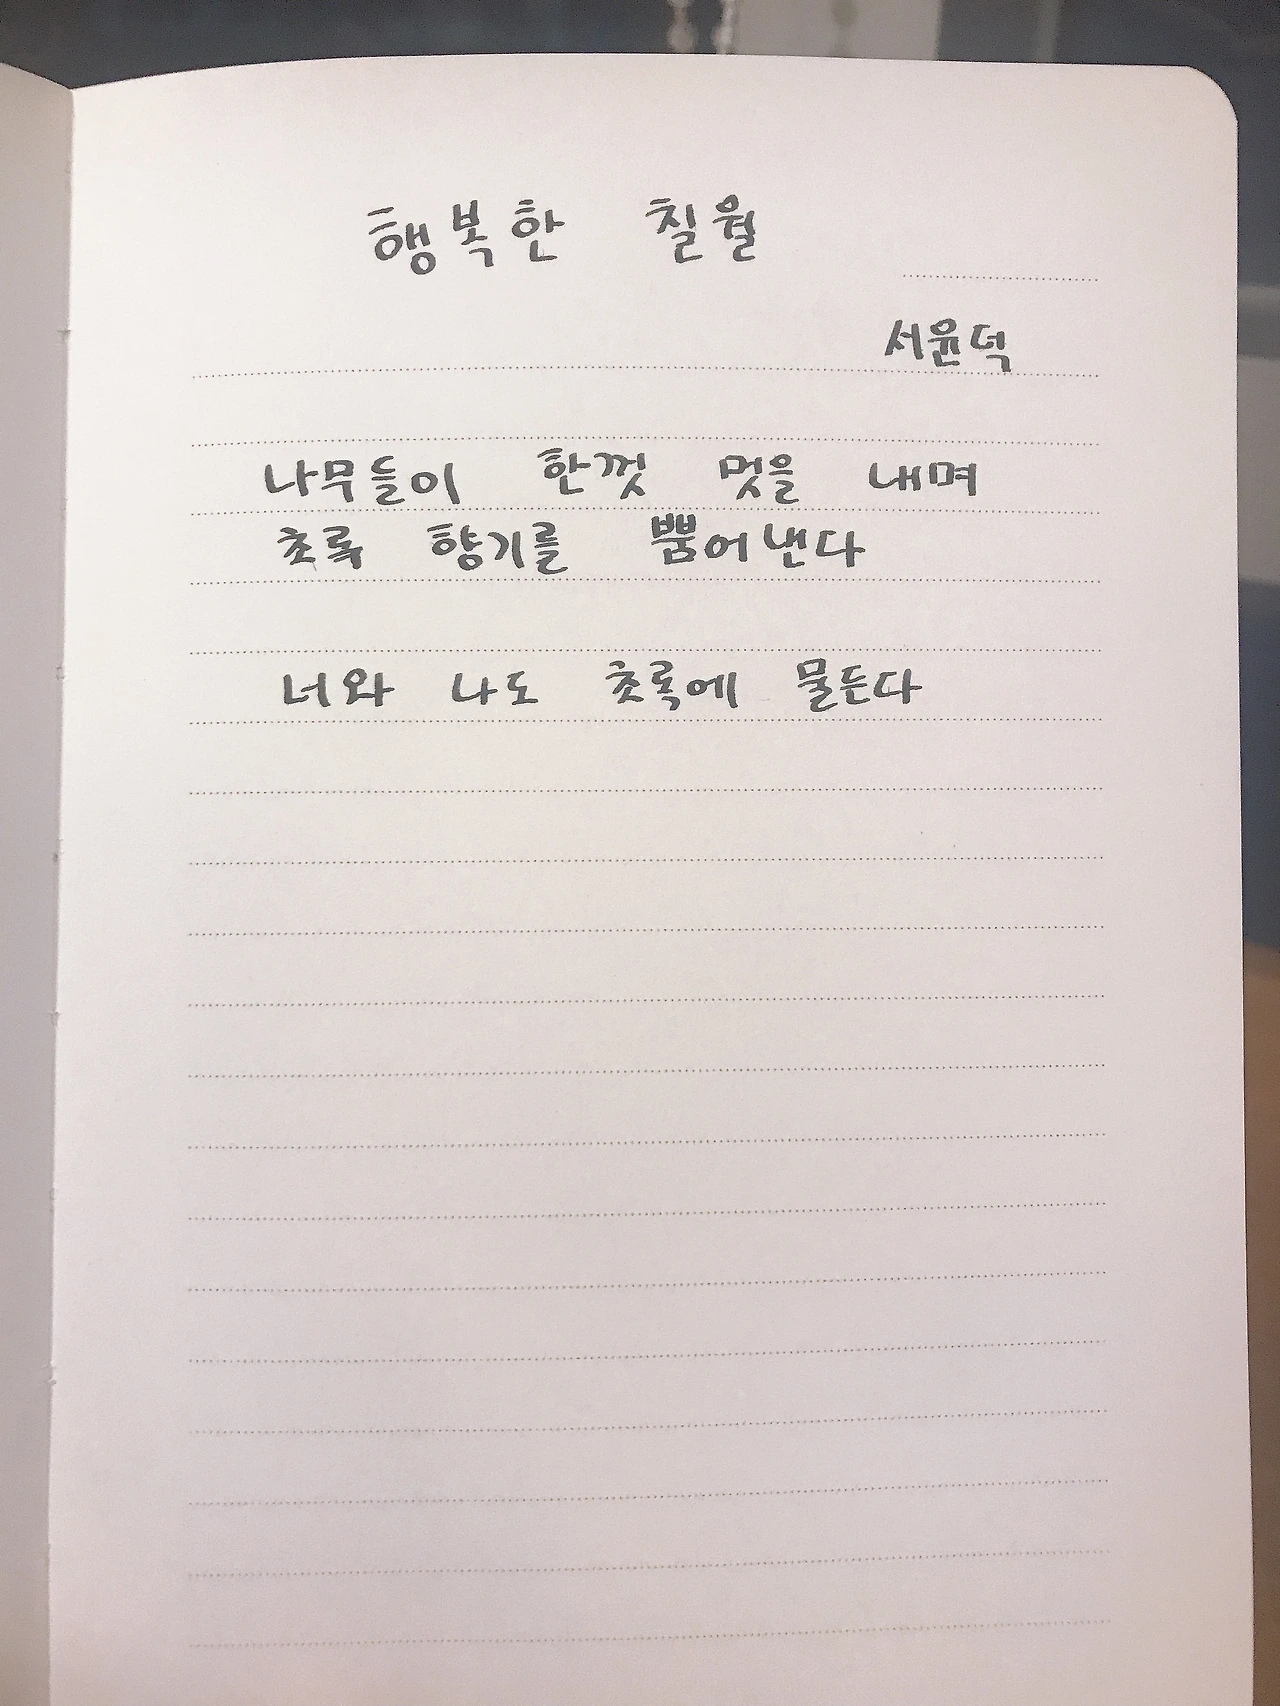 행복한 칠월
서윤덕
나무들이 한껏 멋을 내며
초록 향기를 뿜어낸다
너와 나도 초록에 물든다